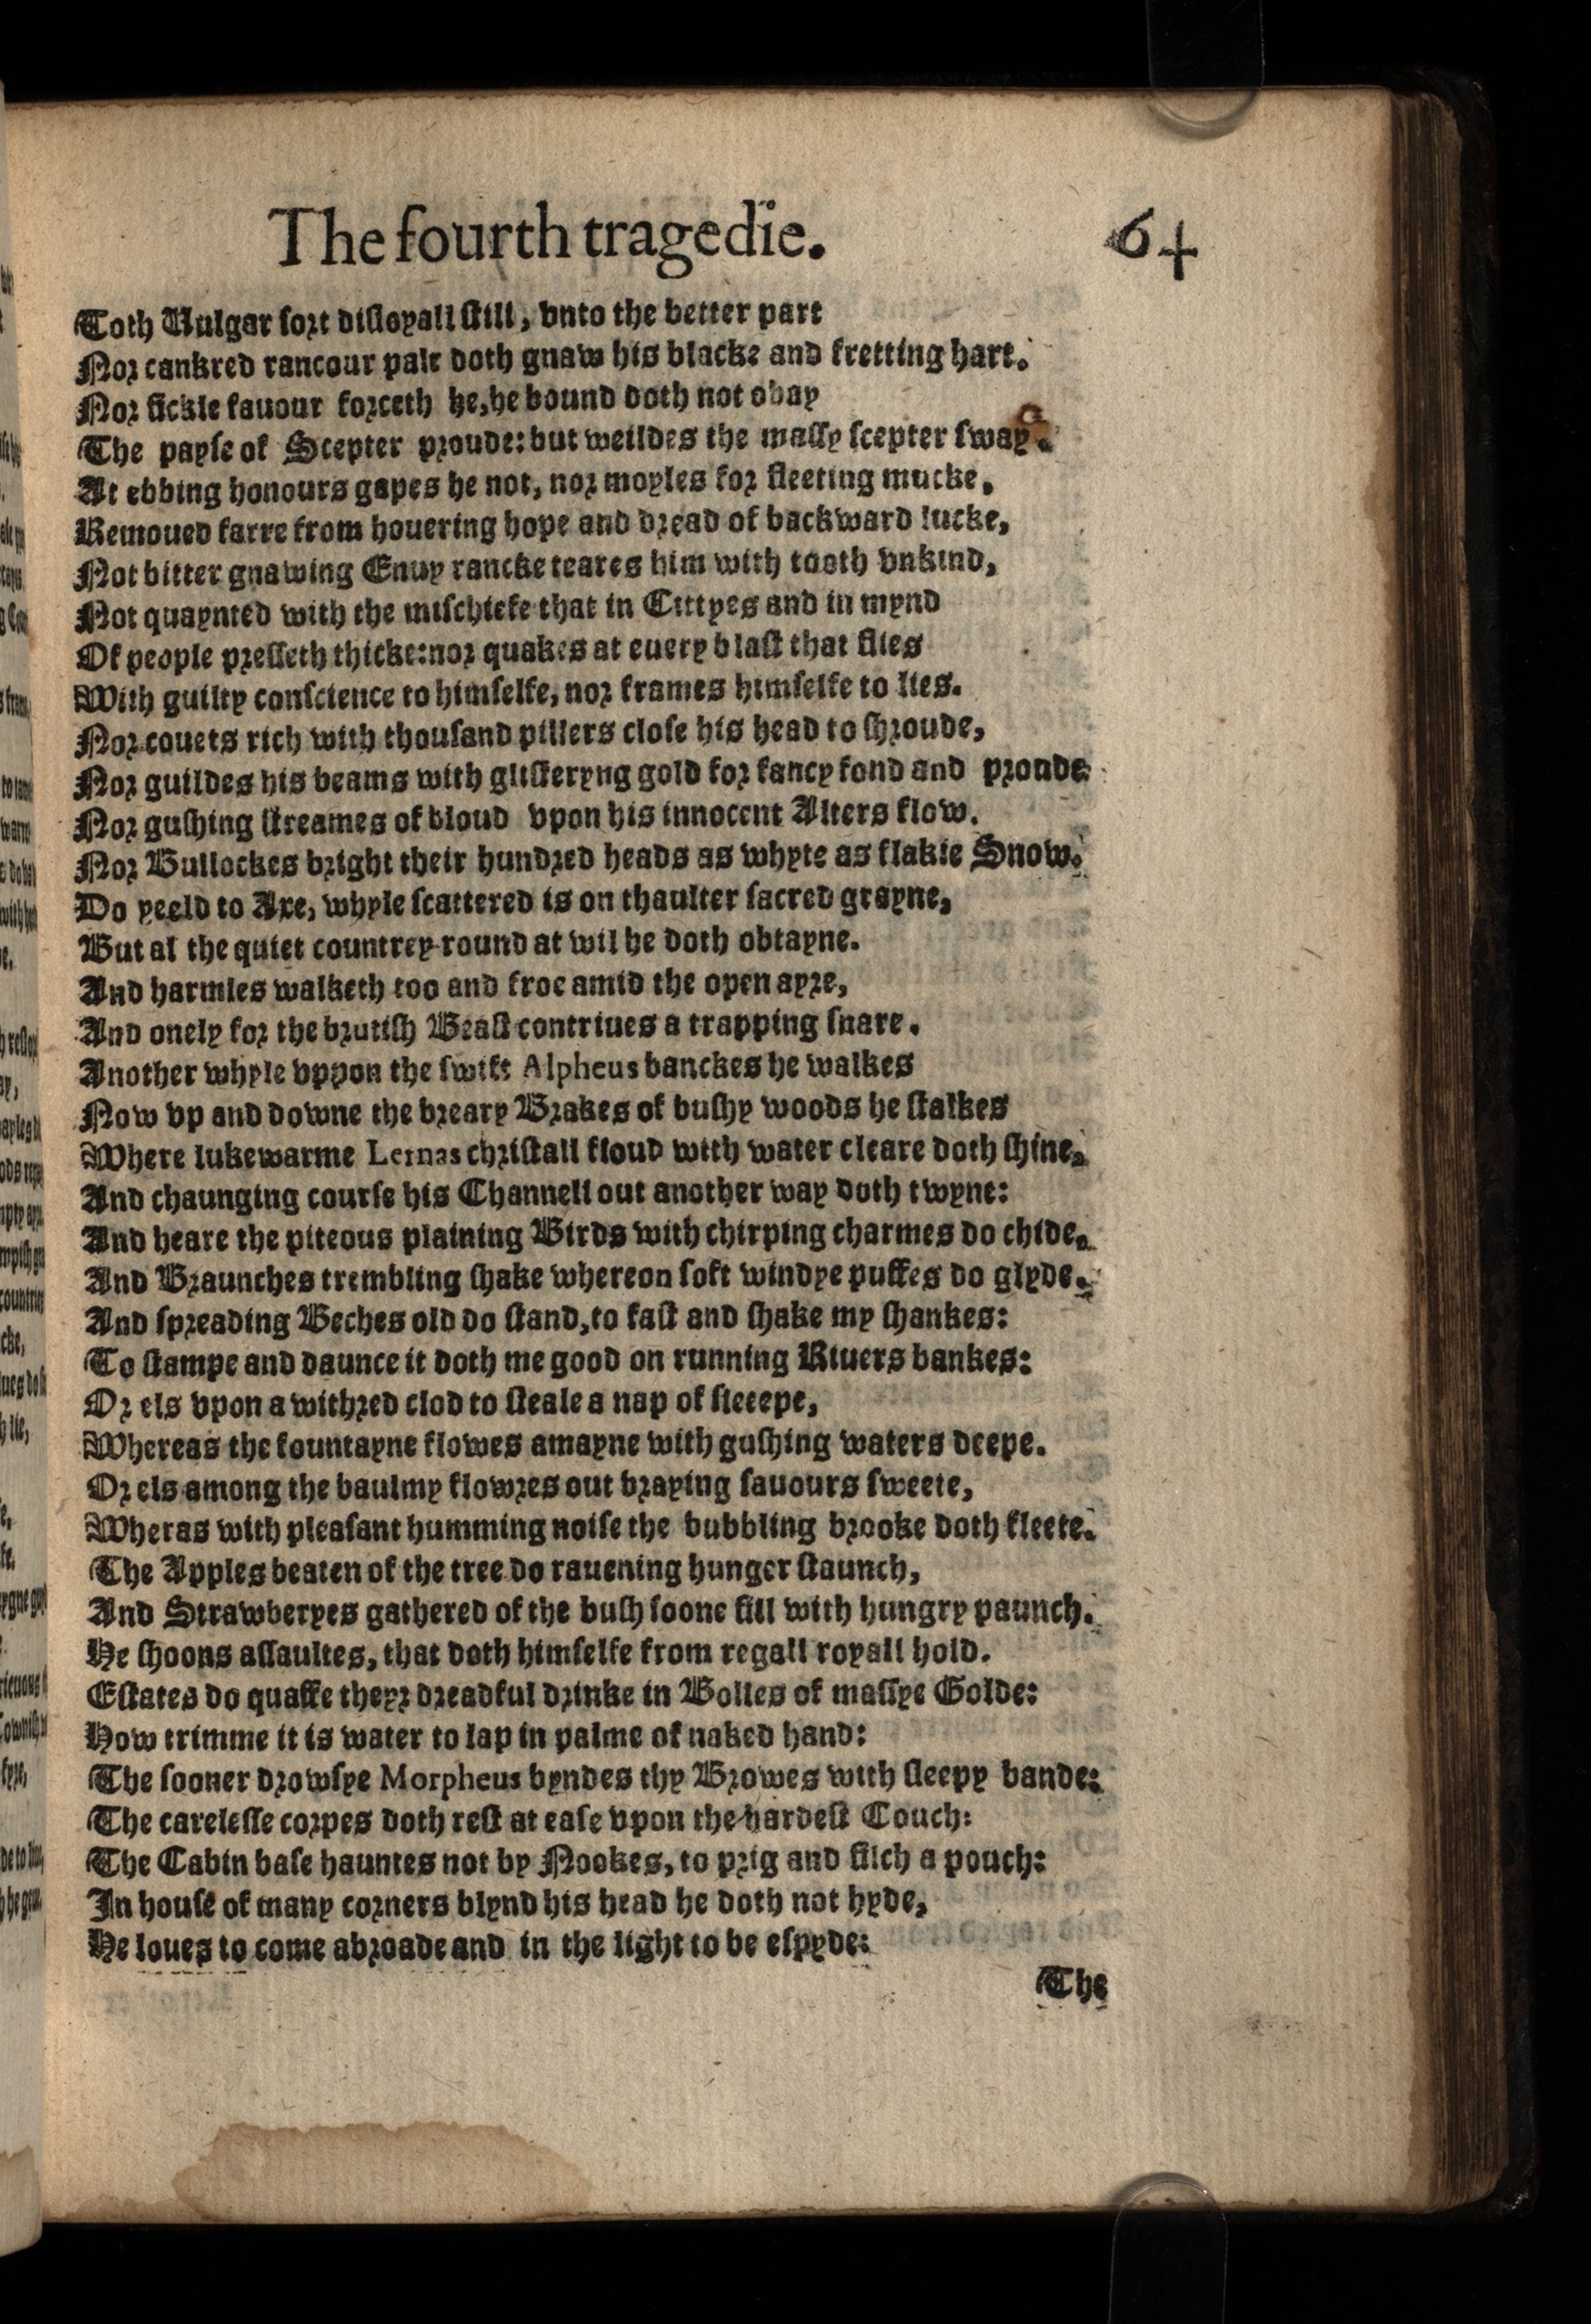 The fourth tragedie. 64
Toth Uulgar ſort diſloyall ſtill, vnto the better part
Nor cankred rancour pale doth gnaw his blacke and fretting hart.
Nor fickle fauour forceth he, he bound doth not obay
The payſe of Scepter proude: but weildes the maſſy ſcepter ſway.
At ebbing honours gapes he not, nor moyles for fleeting mucke,
Remoued farre from houering hope and dread of backward lucke,
Not bitter gnawing Enuy rancke teares him with tooth vnkind,
Not quaynted with the miſchiefe that in Cittyes and in mynd
Of people preſſeth thicke: nor quakes at euery blaſt that flies
With guilty conſcience to himſelfe, nor frames himſelfe to lies.
Nor couets rich with thouſand pillers cloſe his head to ſhroude,
Nor guildes his beams with gliſteryng gold for fancy fond and proude
Nor guſhing ſtreames of bloud vpon his innocent Alters flow.
Nor Bullockes bright their hundred heads as whyte as flakie Snow.
Do yeeld to Axe, whyle ſcattered is on thaulter ſacred grayne,
But al the quiet countrey round at wil he doth obtayne.
And harmles walketh too and froe amid the open ayre,
And onely for the brutiſh Beaſt contriues a trapping ſnare.
Another whyle vppon the ſwift Alpheus banckes he walkes
Now vp and downe the breary Brakes of buſhy woods he ſtalkes
Where lukewarme Lernas chriſtall floud with water cleare doth ſhine.
And chaunging courſe his Channell out another way doth twyne:
And heare the piteous plaining Birds with chirping charmes do chide.
And Braunches trembling ſhake whereon ſoft windye puffes do glyde.
And ſpreading Beches old do ſtand, to faſt and ſhake my ſhankes:
To ſtampe and daunce it doth me good on running Riuers bankes:
Or els vpon a withred clod to ſteale a nap of ſleeepe,
Whereas the fountayne flowes amayne with guſhing waters deepe.
Or els among the baulmy flowres out braying ſauours ſweete,
Wheras with pleaſant humming noiſe the bubbling brooke doth fleete.
The Apples beaten of the tree do rauening hunger ſtaunch,
And Strawberyes gathered of the buſh ſoone fill with hungry paunch.
He ſhoons aſſaultes, that doth himſelfe from regall royall hold.
Eſtates do quaffe theyr dreadful drinke in Bolles of maſſye Golde:
How trimme it is water to lap in palme of naked hand:
The ſooner drowſye Morpheus byndes thy Browes with ſleepy bande:
The careleſſe corpes doth reſt at eaſe vpon the hardeſt Couch:
The Cabin baſe hauntes not by Nookes, to prig and filch a pouch:
In houſe of many corners blynd his head he doth not hyde,
He loues to come abroade and in the light to be eſpyde:
The